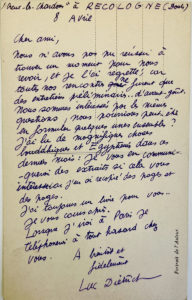 à RECOLOGNE (Doubs)
8 Avril
Cher ami,
Nous n'avons pas pu réussir à
trouver un moment pour nous
revoir, et je l'ai regretté, car
toutes nos rencontres ne furent que
des entretiens préliminaires, d'avant goût.
Nous sommes intéressés par les mêmes
questions, nous pourrions peut-être
en formuler quelques unes ensemble ?
J'ai lu de magnifiques choses
bouddhiques et Egyptiennes dans ces
derniers mois : Je vous en communi-
querai des extraits si cela vous
intéresse car j'en ai recopié des pages et
des pages.
J'ai toujours un livre pour vous.
Je vous
Lorsque j'irai à Paris je
téléphonerai à tout hasard chez
vous.
A bientôt et
fidèlement
Luc Dietrich